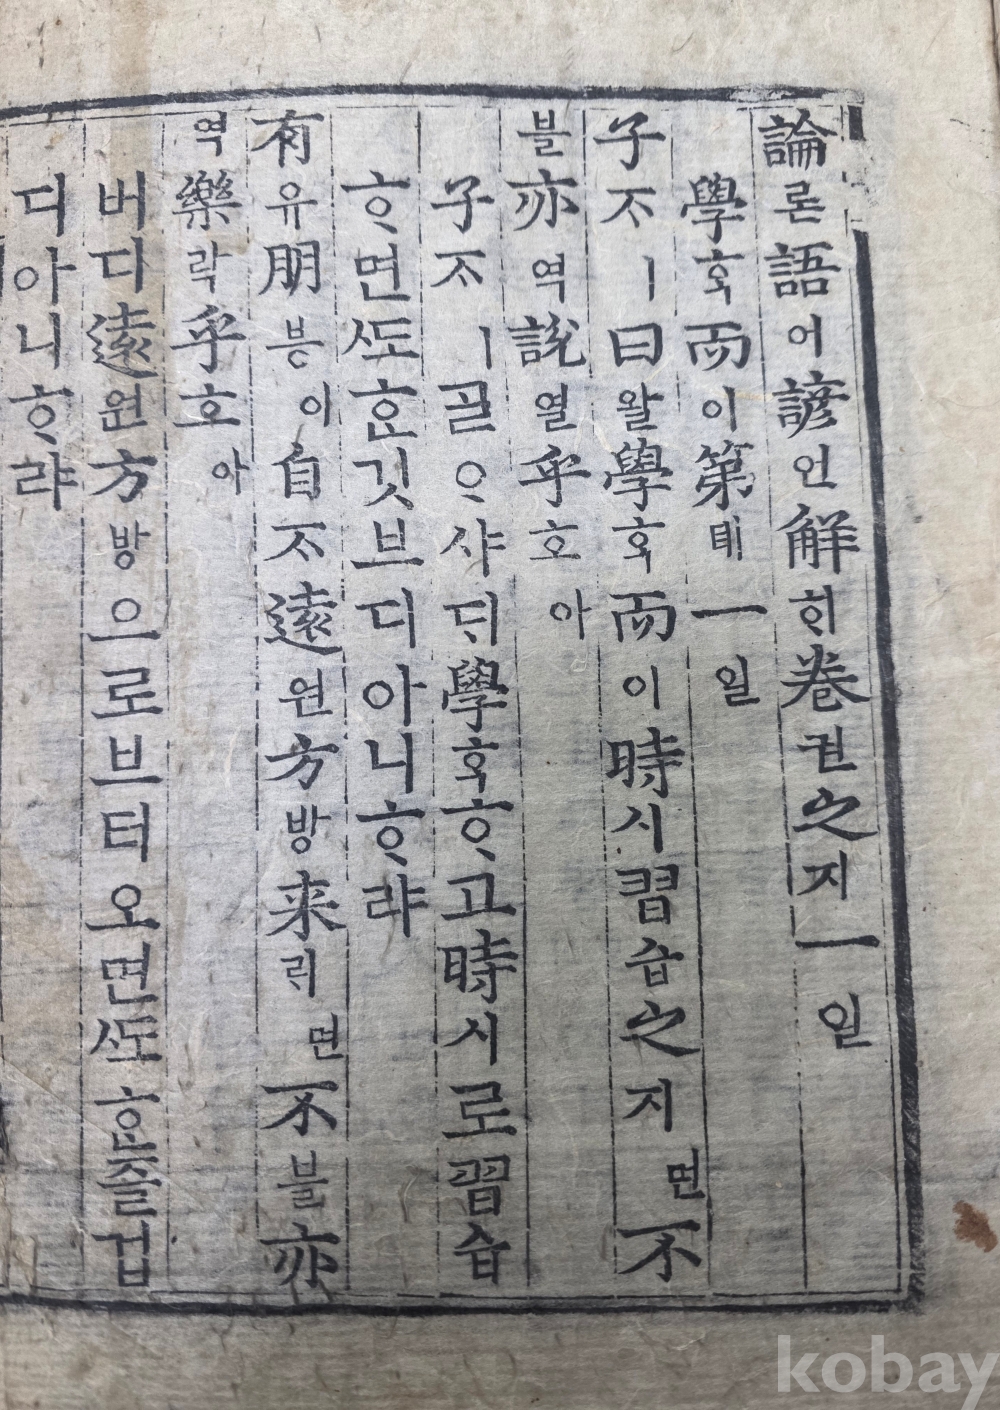 論론語어諺언解ᄒᆡ卷권之지一일
學ᄒᆞᆨ而이第뎨一일
子ᄌᆞㅣ曰왈學ᄒᆞᆨ而이時시習습之지면不
블亦역說열乎호아
子ᄌᆞㅣᄀᆞᆯᄋᆞ샤ᄃᆡ學ᄒᆞᆨᄒᆞ고時시로習습
ᄒᆞ면ᄯᅩᄒᆞᆫ깃브디아니ᄒᆞ랴
有유朋븡이自ᄌᆞ遠원方방来ᄅᆡ면不블亦
역樂락乎호아
버디遠원方방으로브터오면ᄯᅩᄒᆞᆫ즐겁
디아니ᄒᆞ랴
kobay